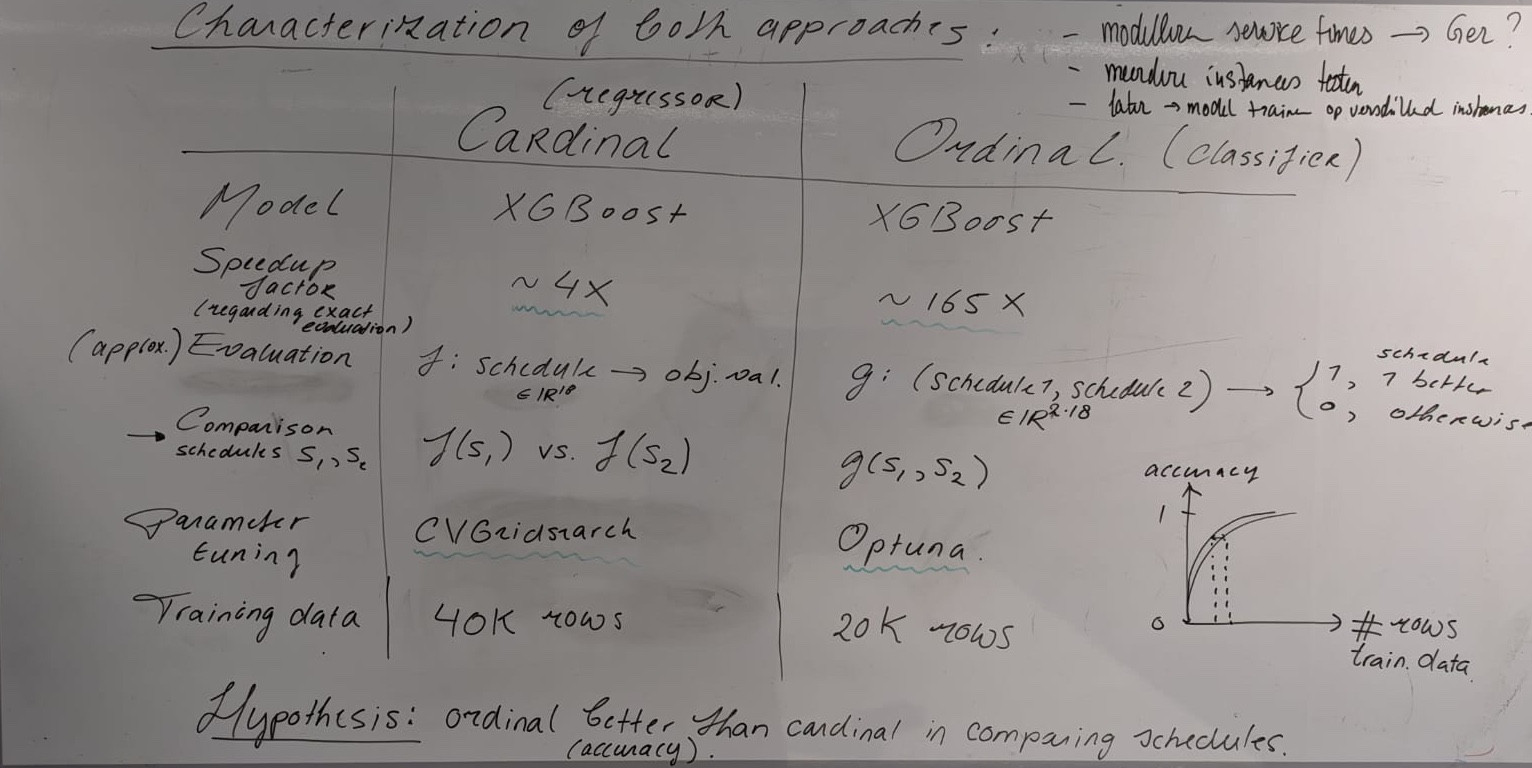 Characterization of both approaches:
- modelleren service times → Ger?
- meerdere instances testen
- later → model trainen op verschillend instances.
(regressor)
Cardinal
Ordinal. (classifier)
Model
XGBoost
XGBoost
Speedup
factor
(regarding exact
evaluation)
~ 4X
~ 165 X
(approx.) Evaluation
f: schedule → obj. val.
∈ IR¹⁸
g: (schedule 1, schedule 2) → { 1, schedule
1 better
0, otherwise
∈ IR²·¹⁸
→ Comparison
schedules S₁, S₂
f(s₁) vs. f(s₂)
g(s₁, s₂)
Parameter
tuning
CVGridsearch
Optuna.
Training data
40K rows
20K rows
accuracy
1
0
# rows
train. data
Hypothesis: ordinal better than cardinal in comparing schedules.
(accuracy).